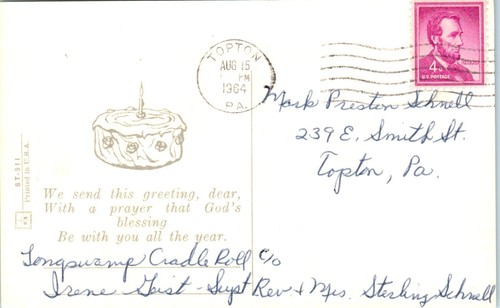 TOPTON
AUG 15
PM
1964
PA.
4¢
U.S. POSTAGE
Mark Preston Schnell
239 E. Smith St.
Topton, Pa.
ST-311
Printed in U.S.A.
We send this greeting, dear,
With a prayer that God's
blessing
Be with you all the year.
Longswamp Cradle Roll c/o
Irene Geist - Supt Rev + Mrs. Sterling Schnell